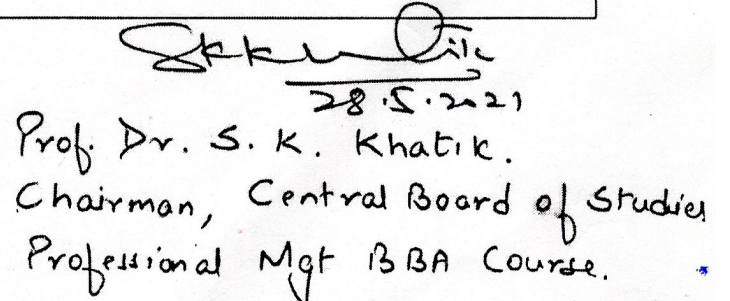 SKKhatik
28.5.2021
Prof. Dr. S. K. Khatik.
Chairman, Central Board of Studies
Professional Mgt BBA Course.